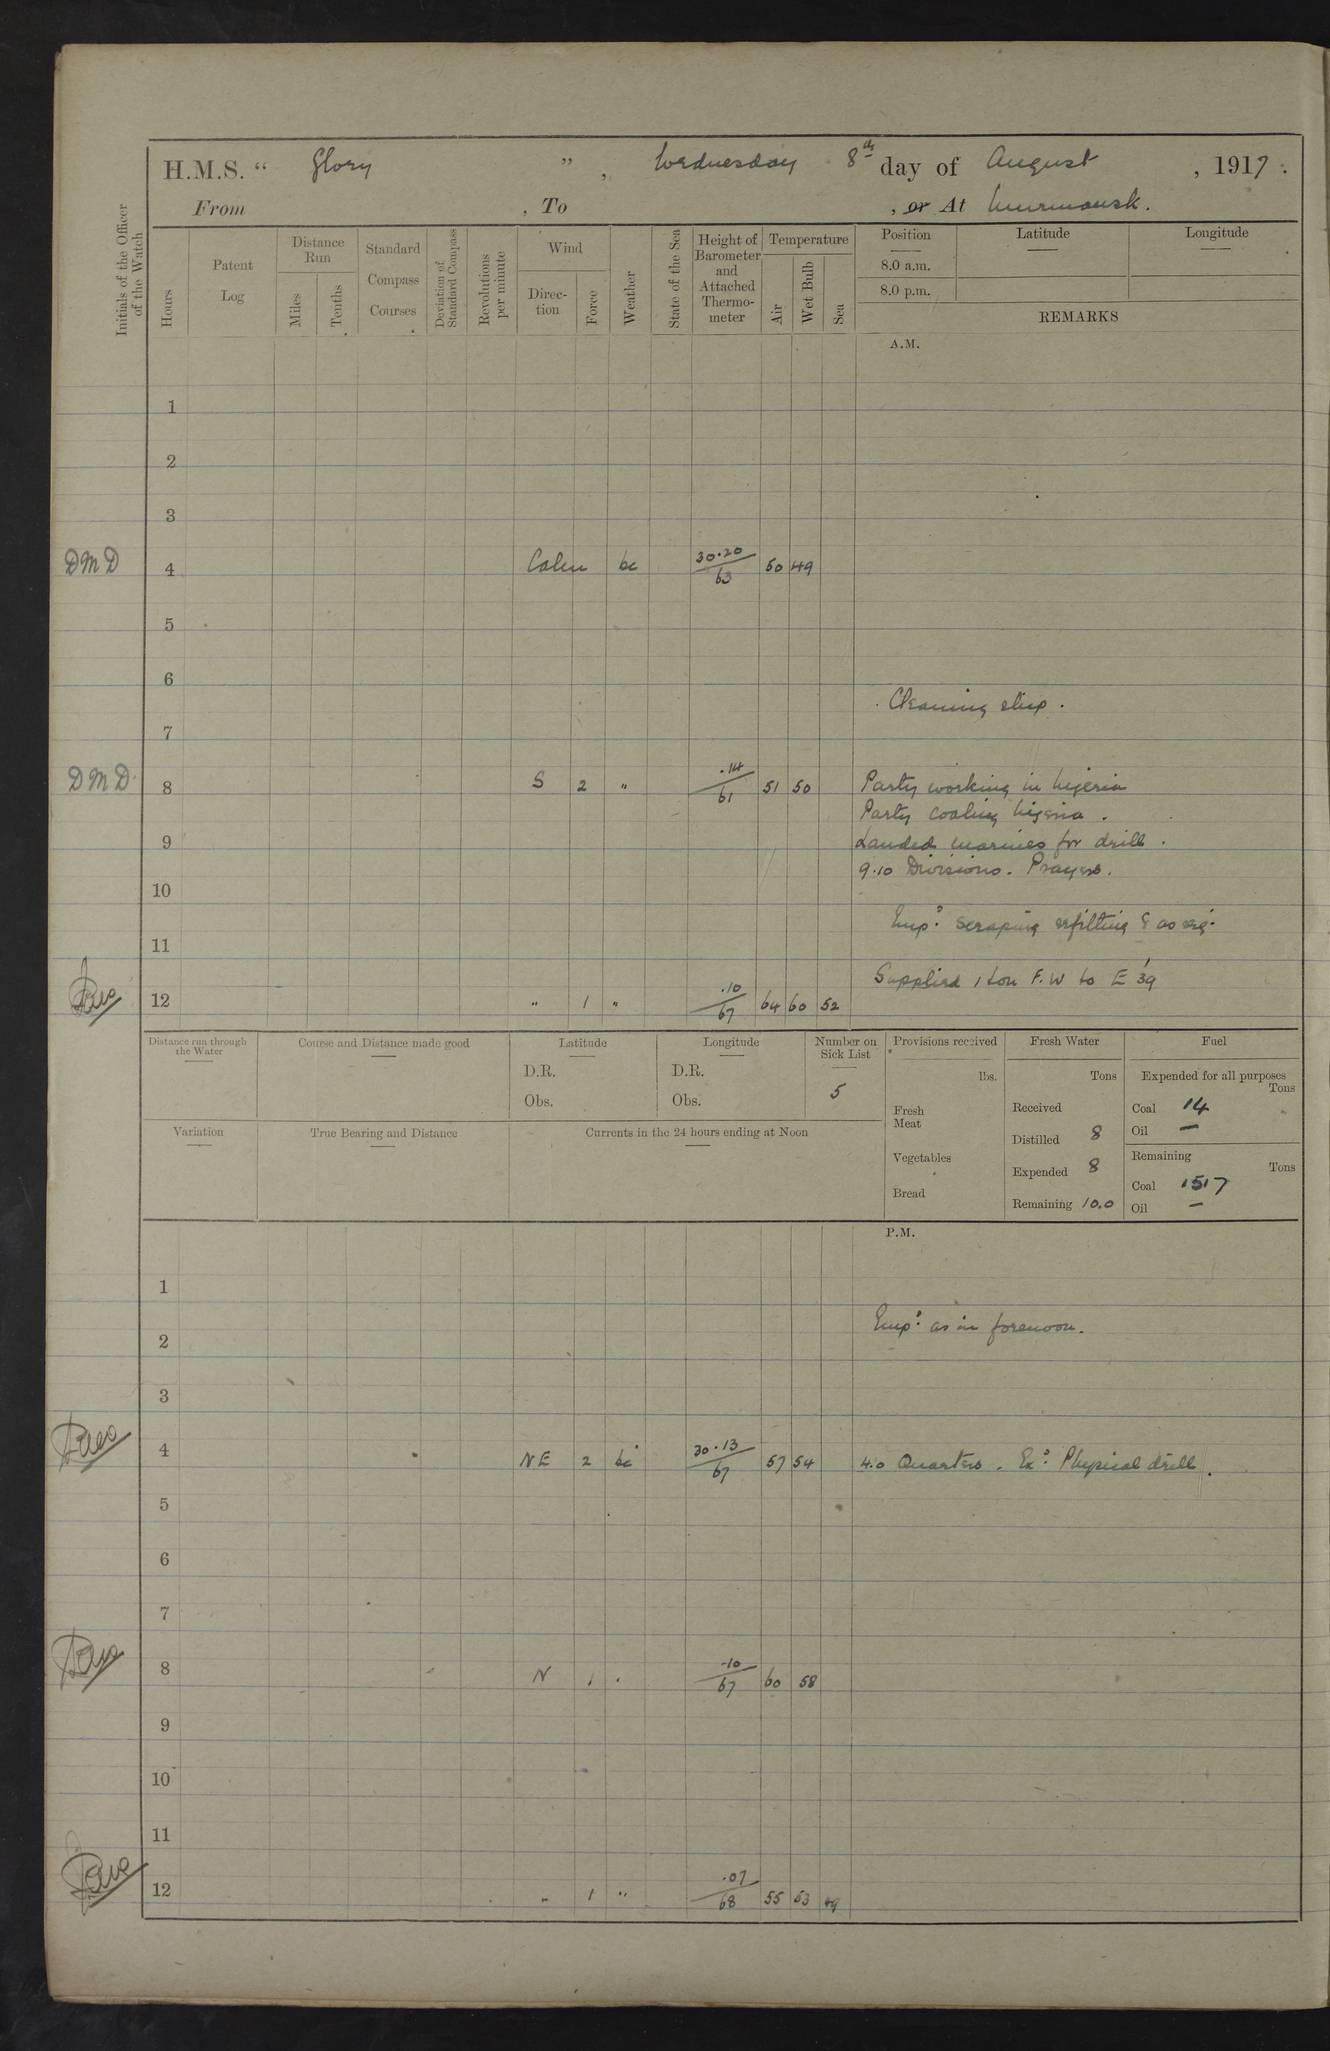 H.M.S. " Glory ", Wednesday 8th day of August, 1917.
From , To , or At Murmansk.
Initials of the Officer of the Watch
Hours
Patent Log
Distance Run
Miles
Tenths
Standard Compass Courses
Deviation of Standard Compass
Revolutions per minute
Wind
Direction
Force
Weather
State of the Sea
Height of Barometer and Attached Thermometer
Temperature
Air
Wet Bulb
Sea
Position
Latitude
Longitude
8.0 a.m.
8.0 p.m.
REMARKS
A.M.
1
2
3
DMD 4 Calm bc 30.20/63 50 49
5
6
Cleaning ship.
7
DMD 8 S 2 " .14/61 51 50 Party working in Nigeria
Party coaling Nigeria.
9 Landed marines for drill.
9.10 Divisions. Prayers.
10
Empd: scraping refitting & as req.
11
Supplied 1 ton F.W to E 39
12 " 1 " .10/67 64 60 52
Distance run through the Water
Course and Distance made good
Latitude
D.R.
Obs.
Longitude
D.R.
Obs.
Number on Sick List
5
Provisions received
lbs.
Fresh Meat
Vegetables
Bread
Fresh Water
Tons
Received
Distilled 8
Expended 8
Remaining 100
Fuel
Expended for all purposes
Tons
Coal 14
Oil —
Remaining
Tons
Coal 1517
Oil —
Variation
True Bearing and Distance
Currents in the 24 hours ending at Noon
P.M.
1
Empd: as in forenoon.
2
3
4 NE 2 bc 30.13/67 57 54 4.0 Quarters. Exd: Physical drill.
5
6
7
8 N 1 . .10/67 60 58
9
10
11
12 " 1 " .07/68 55 53 49